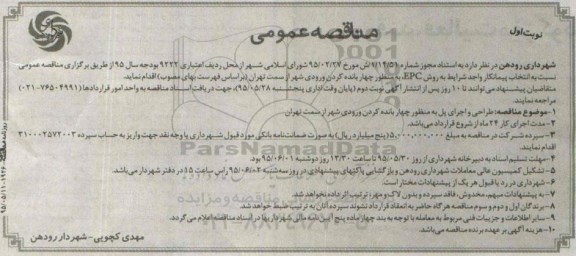 نوبت اول
مناقصه عمومی
شهرداری رودهن در نظر دارد به استناد مجوز شماره ۹/۱۲/۵۹ ش مورخ ۹۵/۰۲/۲۷ شورای اسلامی شهر از محل ردیف اعتباری ۹۲۲۲ بودجه سال ۹۵ از طریق برگزاری مناقصه عمومی
نسبت به انتخاب پیمانکار واجد شرایط به روش EPC، به منظور چهار بانده کردن ورودی شهر از سمت تهران (براساس فهرست بهای مصوب) اقدام نماید.
متقاضیان پیشنهاد می توانند تا ۱۰ روز پس از انتشار آگهی نوبت دوم (پایان وقت اداری پنجشنبه ۹۵/۰۵/۲۸)، جهت دریافت اسناد مناقصه به واحد امور قراردادها (۷۶۵۰۴۹۹۱-۰۲۱)
مراجعه نمایند.
۱-موضوع مناقصه: طراحی و اجرای پل به منظور چهار بانده کردن ورودی شهر از سمت تهران
۲-مدت اجرای کار ۲۴ ماه از شروع قرارداد می باشد.
۳-سپرده شرکت در مناقصه به مبلغ ۵,۰۰۰,۰۰۰,۰۰۰ (پنج میلیارد ریال) به صورت ضمانت نامه بانکی مورد قبول شهرداری یا وجه نقد جهت واریز به حساب سپرده ۳۱۰۰۰۲۵۷۲۰۰۳
اقدام نمایند.
۴-مهلت تسلیم اسناد به دبیرخانه شهرداری از روز ۹۵/۰۵/۳۰ تا ساعت ۱۳/۳۰ روز دوشنبه ۹۵/۰۶/۰۱ بود.
۵-تشکیل کمیسیون عالی معاملات شهرداری رودهن و بازگشایی پاکتهای پیشنهادی در روز سه شنبه ۹۵/۰۶/۰۲ راس ساعت ۱۵ در دفتر شهردار می باشد.
۶-شهرداری در رد یا قبول هر یک از پیشنهادات مختار است.
۷-به پیشنهادات مبهم، مخدوش، فاقد سپرده و بدون لاک و مهر، ترتیب اثر داده نخواهد شد.
۸-برندگان اول و دوم و سوم مناقصه هرگاه حاضر به انعقاد قرارداد نشوند سپرده آنان به ترتیب ضبط خواهد شد.
۹-سایر اطلاعات و جزییات فنی مربوط به معامله با توجه به بند چهار ماده پنج آیین نامه مالی شهرداریها در اسناد مناقصه اعلام می گردد.
۱۰-هزینه آگهی بر عهده برنده مناقصه می باشد.
مهدی کچویی-شهردار رودهن
ParsNamadData